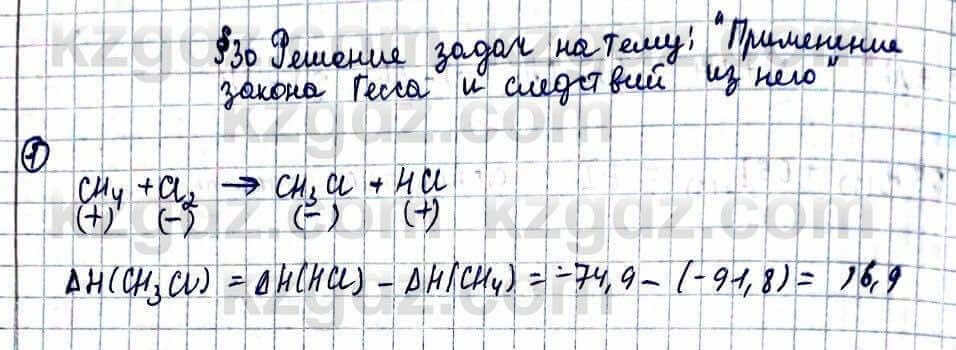 §30 Решение задач на тему: "Применение
закона Гесса и следствий из него"
1
CH4 + Cl2 → CH3Cl + HCl
(+) (-) (-) (+)
ΔH(CH3Cl) = ΔH(HCl) - ΔH(CH4) = -74,9 - (-91,8) = 16,9
kzgdz.com